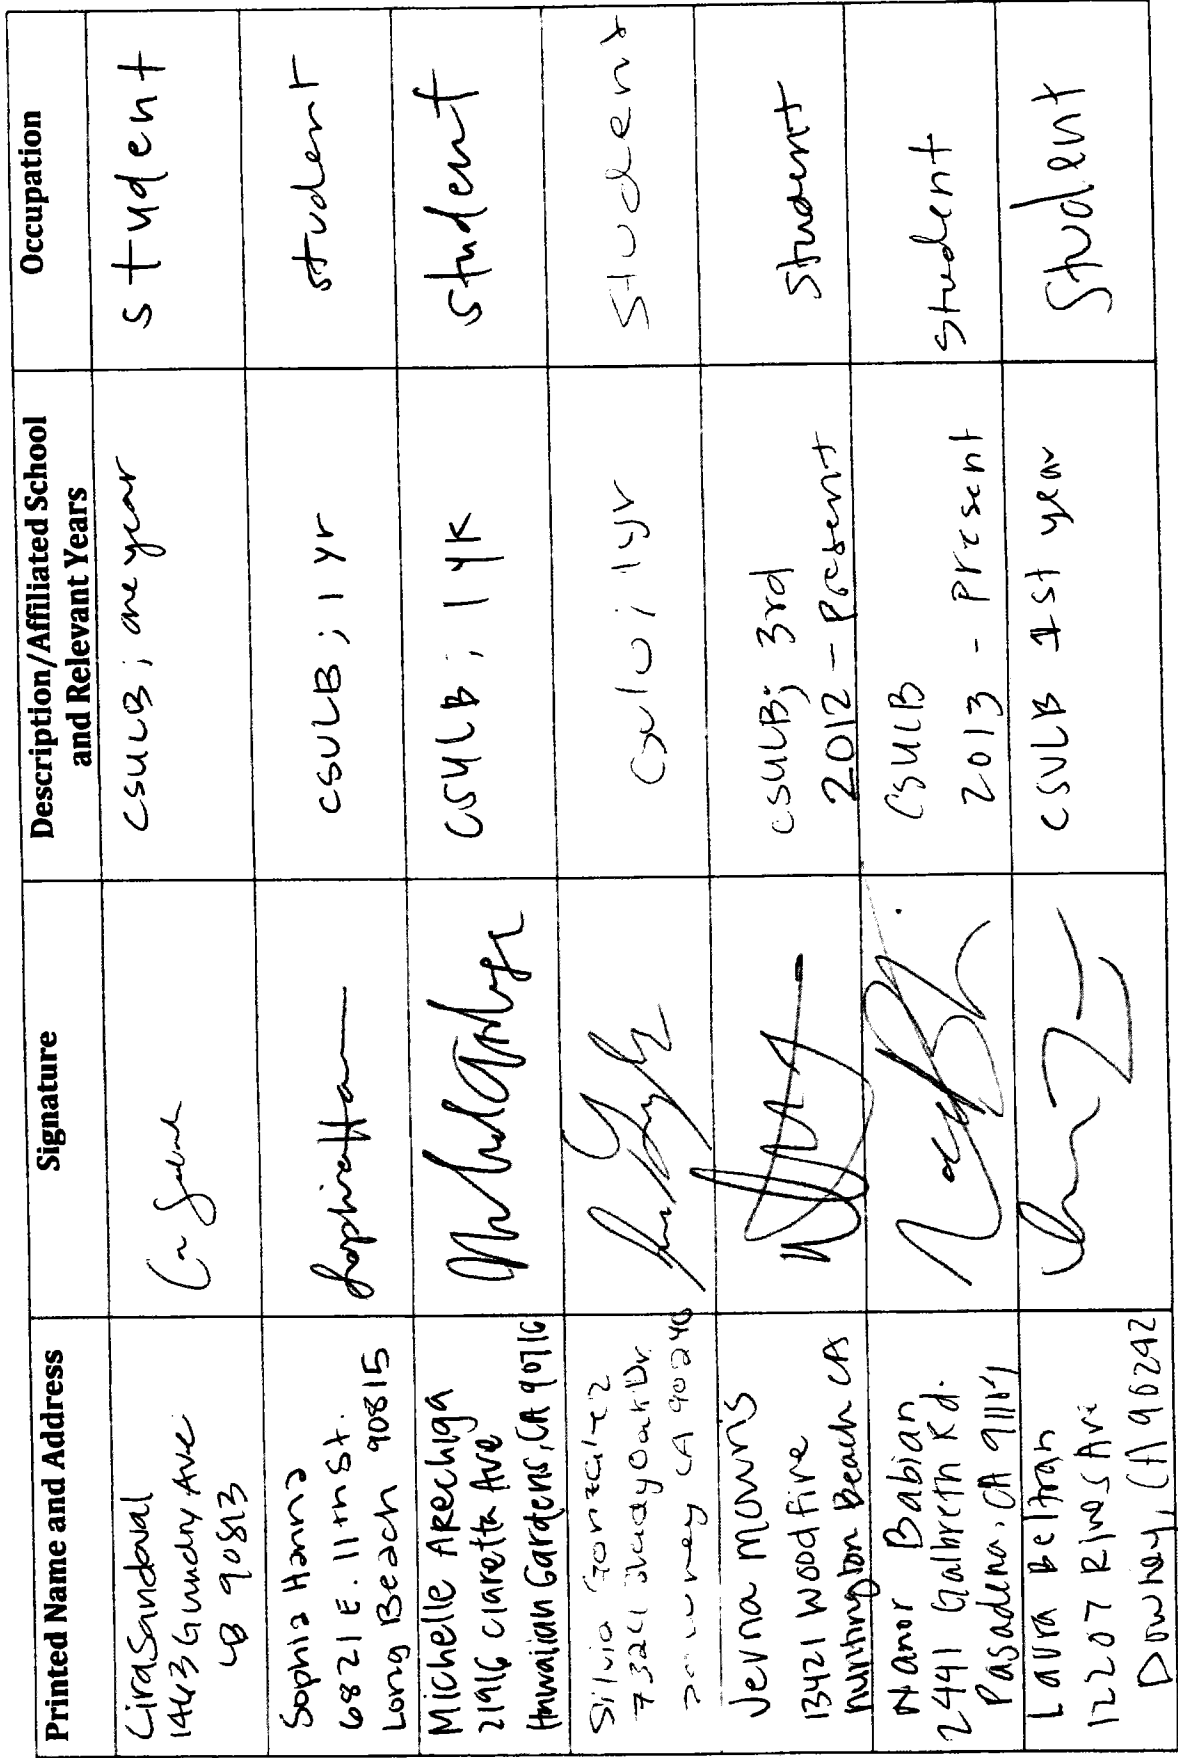 Printed Name and Address
Signature
Description/Affiliated School
and Relevant Years
Occupation
Lira Sandoval
1443 Gundry Ave
LB 90813
CSULB; one year
student
Sophia Hanna
6821 E. 11th St.
Long Beach 90815
CSULB; 1 yr
student
Michelle Arechiga
21916 Claretta Ave
Hawaiian Gardens, CA 90716
CSULB; 1 YR
student
Silvia Gonzalez
7324 Shady Oak Dr.
Downey CA 90240
1yr
Student
Jevna Mowris
13421 Woodfire
Huntington Beach CA
CSULB; 3rd
2012 - Present
Student
Nanor Babian
2441 Galbreth Rd.
Pasadena, CA 91104
CSULB
2013 - Present
Student
Laura Beltran
12207 Rives Ave
Downey, CA 90242
CSULB 1st year
Student